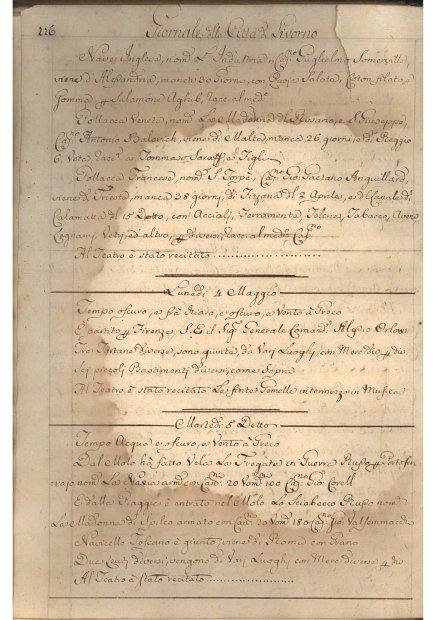 226 Giornale della Città di Livorno
Nave Inglese, nom.ª L'Industria, Cap.no Guglielmo
viene d'Alessandria, manca 30 giorni, con Salata, Coton filato, e
Gomma p Salamone Aghib, racc. al med.º
Pollacca Veneta, nom.ª La Madonna del Rosario, e S. Giuseppe,
Cap.no Antonio Balovich, viene di Malta, manca 26 giorni, e di Reggio
6. Vota, racc.ª a Tommaso e Figli
Pollacca Francese, nom.ª S. Torpè, Cap.no Gio. Gaetano Anquillard,
viene di Trieste, manca 38 giorni, di 2 Aprile, e del Canale di
Calamatta del 15 Detto, con Acciai, Ferramenta, Tabacco,
Legnami, Vetri, ed altro, p diversi, racc. al med.º Cap.no
Al Teatro è stato recitato
Lunedì 4 Maggio
Tempo oscuro, e frà chiaro, e oscuro, e Vento à Greco
È partito p Firenze S. E. il Sig.r Generale Comand.e Alessio Orlow
Tre Tartane diverse, sono giunte da Vari Luoghi, con Merc. div.e p div.
Sei piccoli Bastimenti diversi, come Sopra
Al Teatro è stato recitato Le finte Gemelle intermezzo in Musica
Martedì 5 Detto
Tempo Acqua e oscuro, e Vento à Greco
Dal Molo hà fatto Vela La Fregata in Guerra Russa p Portofer
rajo nom.ª La armª con Can.ni 20 Vom.ni 100 Cap.no Gio Corell
E dalla Piaggia è entrato nel Molo Lo Sciabecco Russo nom.º
La Madonna di armato con Can.ni 20 Vom.ni 180 Cap.no Gio.
Navicello Toscano è giunto, viene di Roma con Grano
Due Leuti diversi, vengono di Vari Luoghi con Merc. diverse p div.
Al Teatro è stato recitato